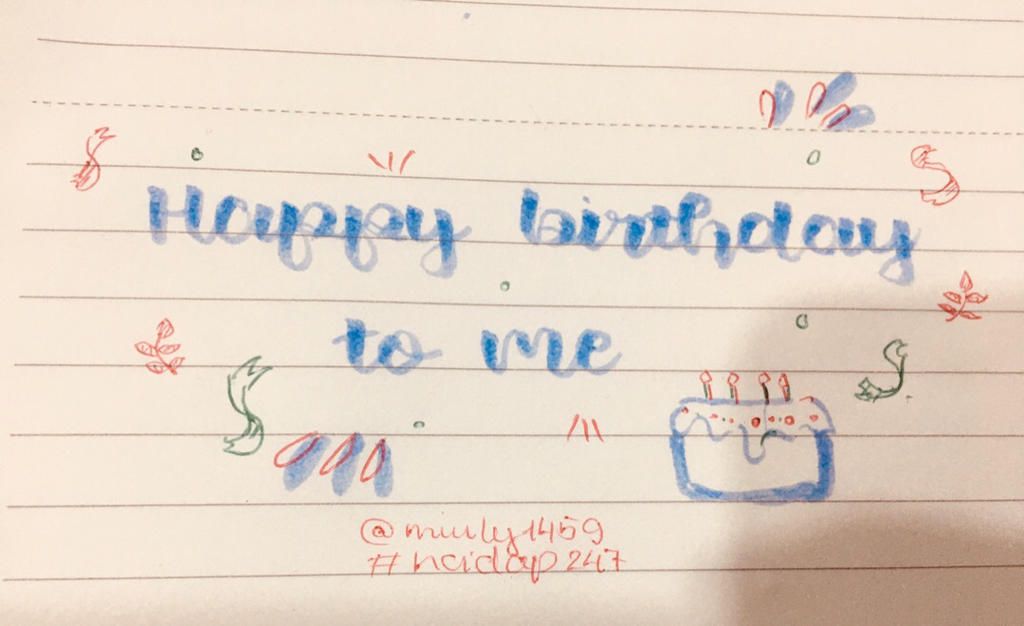 Happy birthday
to me
@miuly1459
#hoidap247